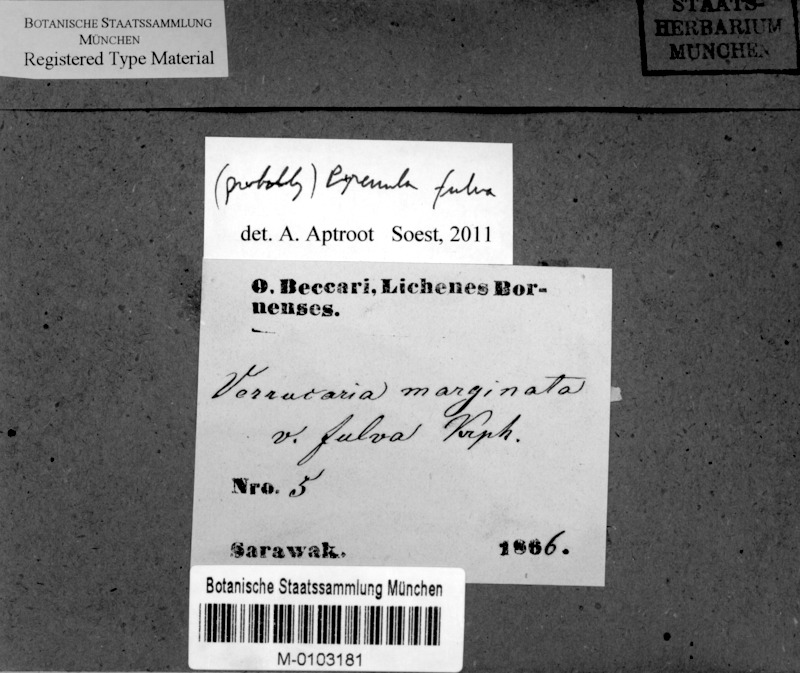 BOTANISCHE STAATSSAMMLUNG
MÜNCHEN
Registered Type Material
STAATS-
HERBARIUM
MÜNCHEN
(probably) Pyrenula fulva
det. A. Aptroot Soest, 2011
O. Beccari, Lichenes Bor-
neenses.
Verrucaria marginata
v. fulva Krph.
Nro. 5
Sarawak. 1866.
Botanische Staatssammlung München
M-0103181